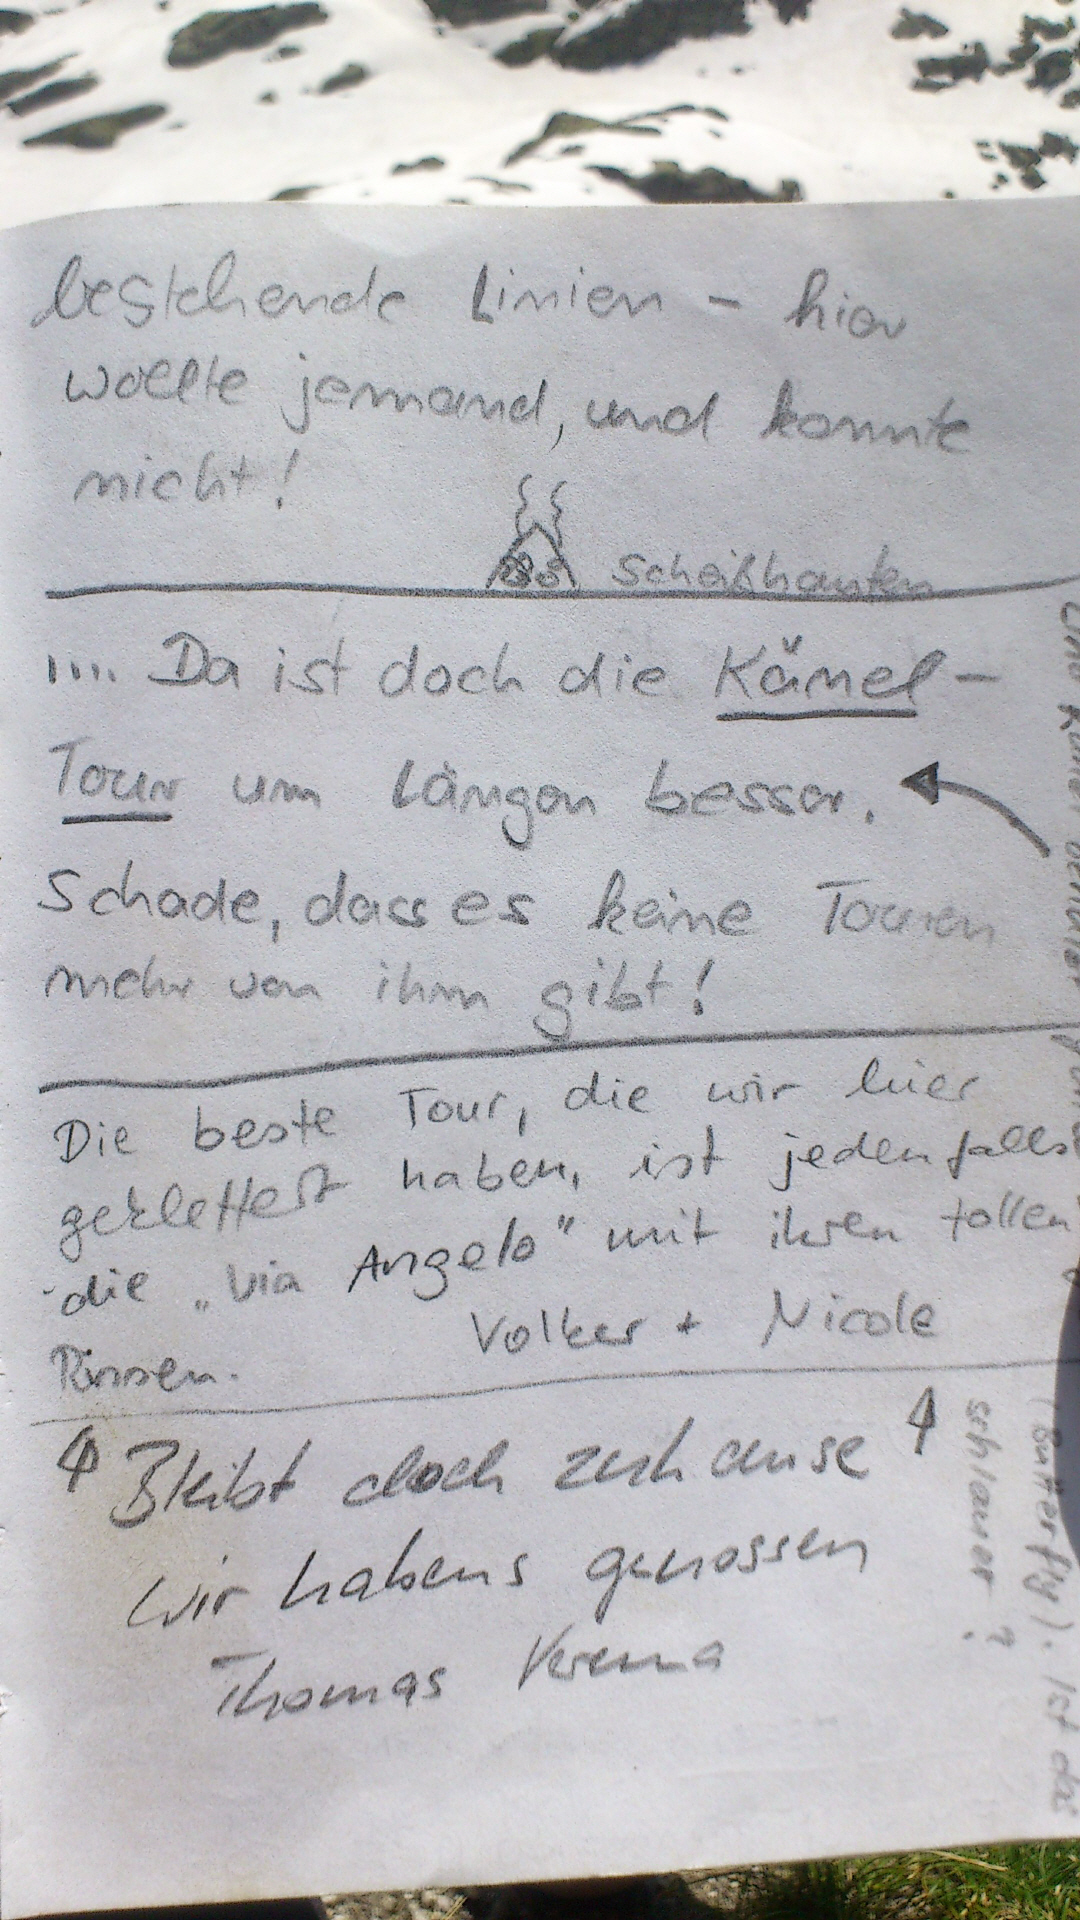 bestehende Linien – hier
wollte jemand, und konnte
nicht!
Scheißhaufen
.... Da ist doch die Kämel–
Tour um Längen besser.
Schade, dass es keine Touren
mehr von ihm gibt!
Die beste Tour, die wir hier
geklettert haben, ist jedenfalls
die „via Angelo" mit ihren tollen
Rinnen.
Volker + Nicole
Bleibt doch zuhause
wir habens genossen
Thomas Verena
(Butterfly). Ist das
schlauer?